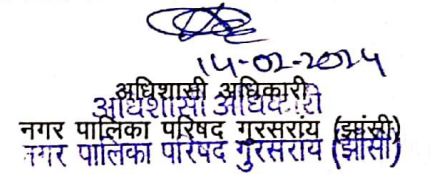 14-02-2024
अधिशासी अधिकारी
अधिशासी अधिकारी
नगर पालिका परिषद गुरसरांय (झांसी)
नगर पालिका परिषद गुरसरांय (झांसी)